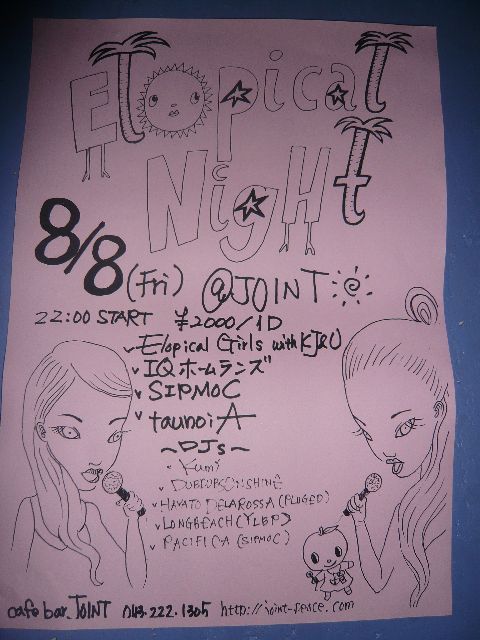 Elopical
Night
8/8 (Fri) @JOINT
22:00 START ¥2000/1D
Elopical Girls with KJ&U
IQホームランズ
SIPMOC
taunoiA
~DJs~
Yumi
HAYATO DELAROSSA (PLUGED)
LONGBEACH (YLBP)
PACIFICA (SIPMOC)
cafe bar JOINT 043.222.1305 http://joint-peace.com